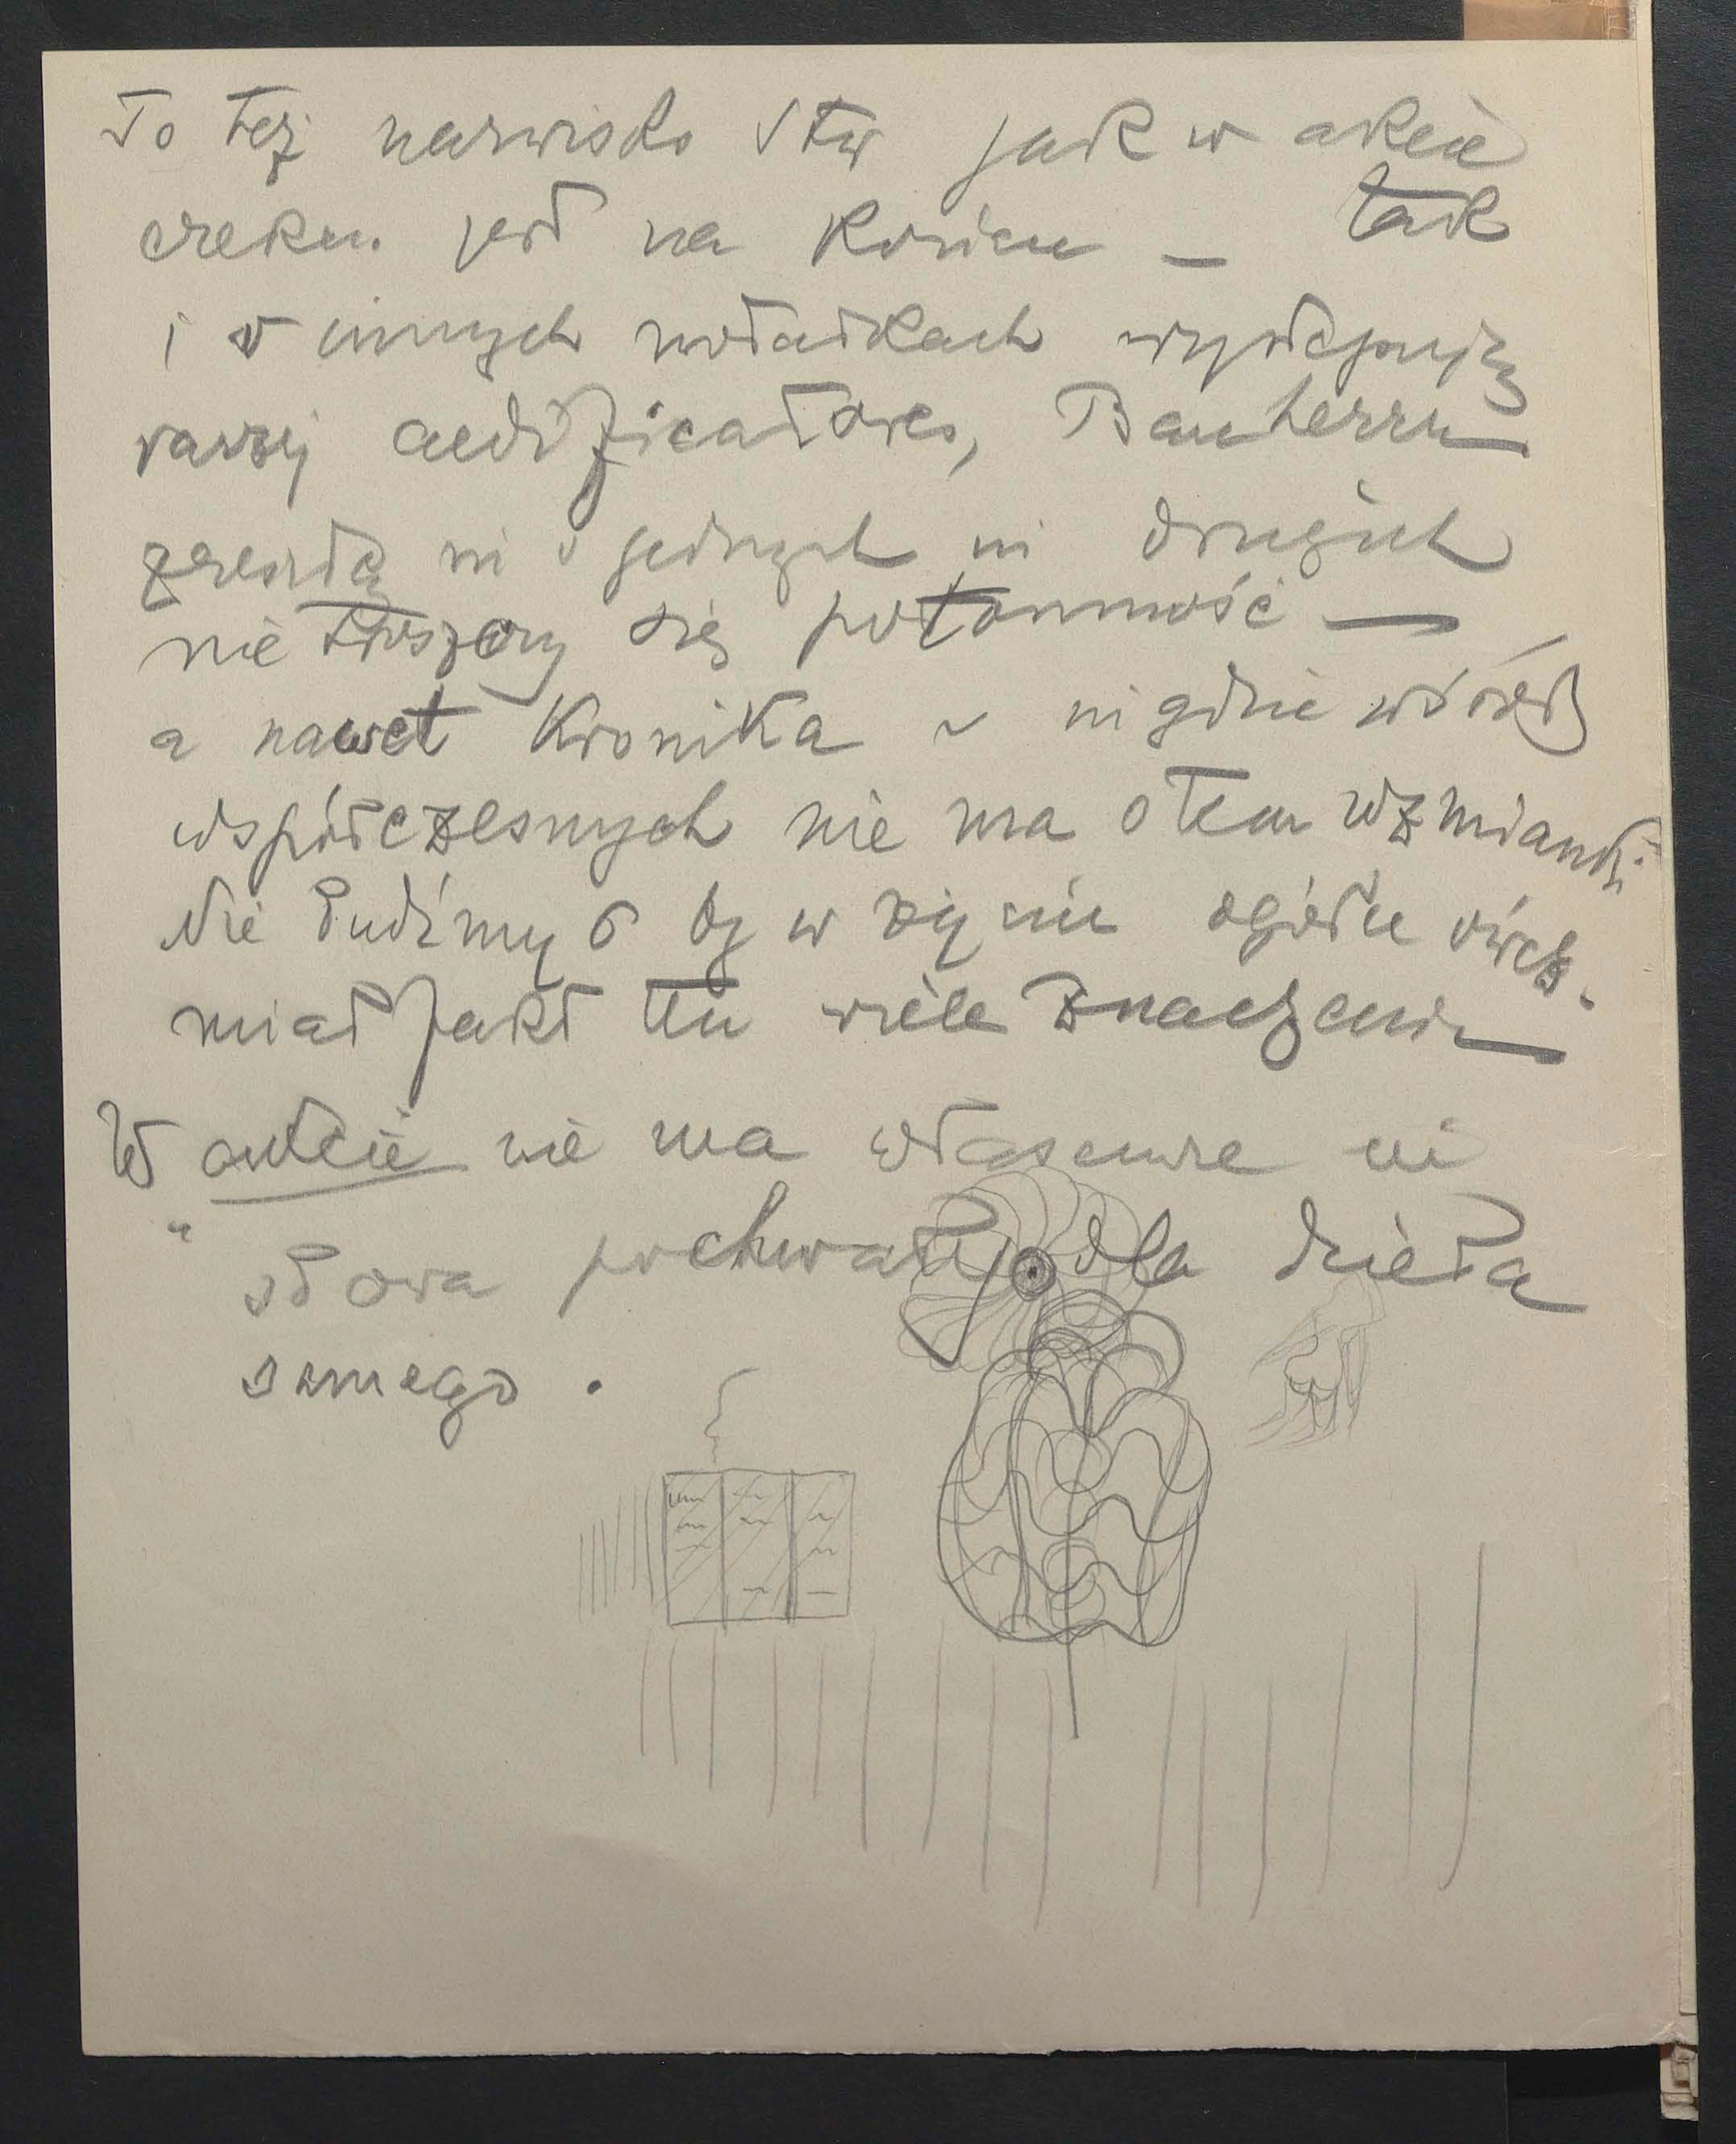 To też nazwisko Stw jak w akcie
erekc. jest na końcu — tak
i w innych notatkach występują
raczej aedificatores, Bauherrn
zresztą ni o jednych ni drugich
nie troszczy się potomność —
a nawet Kronika ~ nigdzie wśród
współczesnych nie ma o tem wzmianki.
Nie łudźmy by w życiu ogółu ówcz.
miał fakt ten wiele znaczenia
W akcie nie ma własciwie ni
" słowa pochwały dla dzieła
samego.